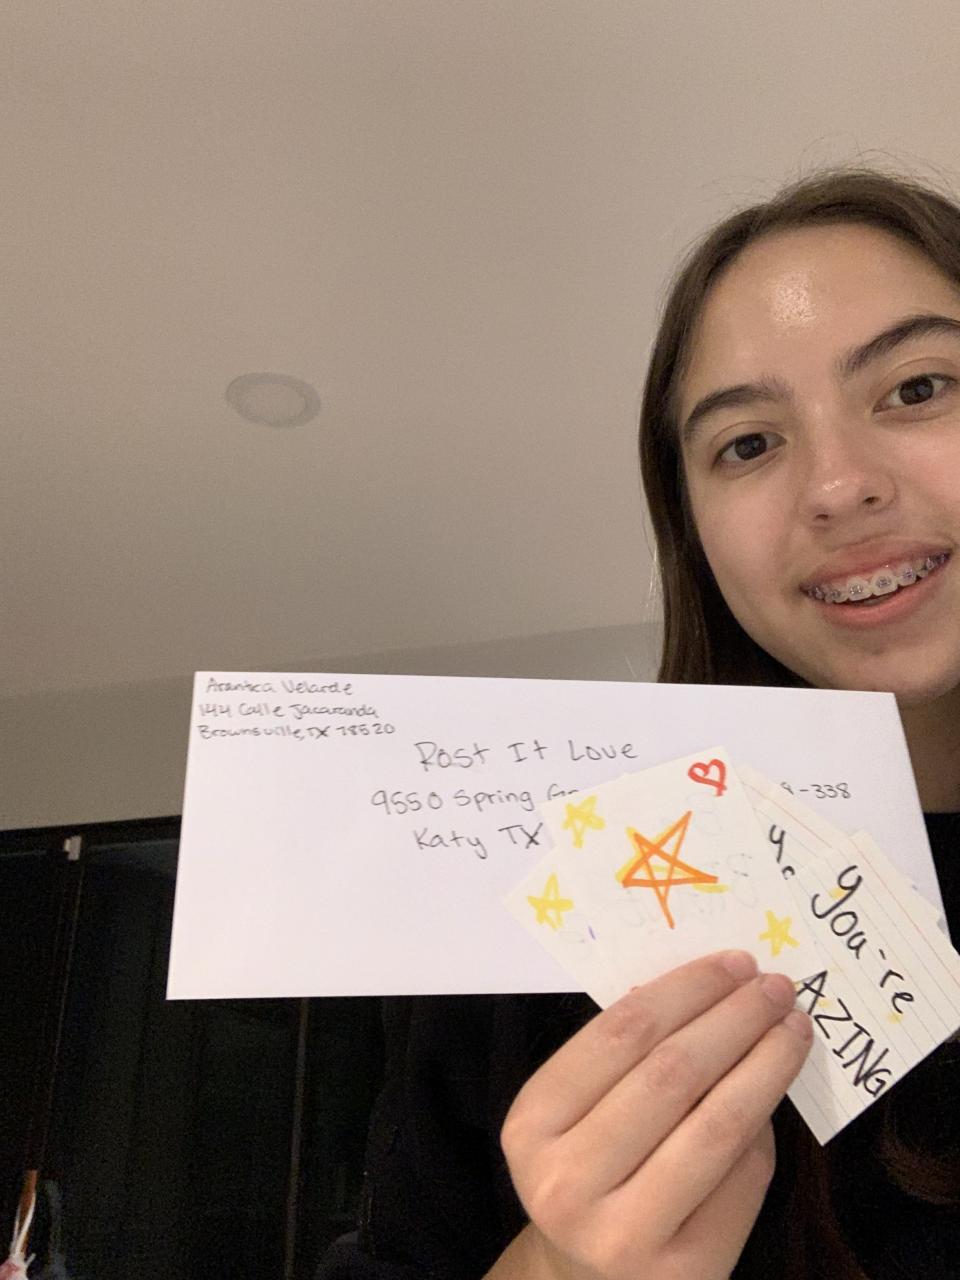 Arantxa Velarde
144 Calle Jacaranda
Brownsville, TX 78520
Post It Love
9550 Spring 9-338
Katy TX
you're
AMAZING